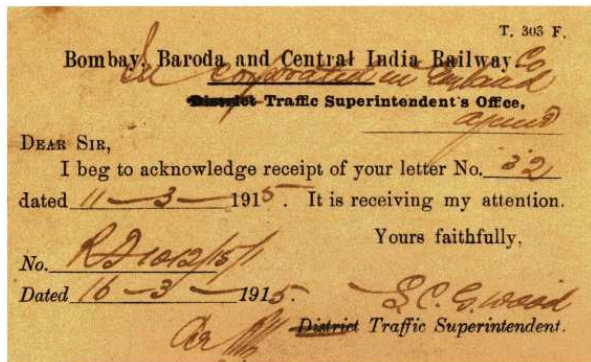 T. 303 F.
Bombay, Baroda and Central India Railway Co
Incorporated in England
District Traffic Superintendent's Office,
DEAR SIR,
I beg to acknowledge receipt of your letter No. 32
dated 11-3-1915. It is receiving my attention.
Yours faithfully,
No.
Dated 16-3-1915.
District Traffic Superintendent.